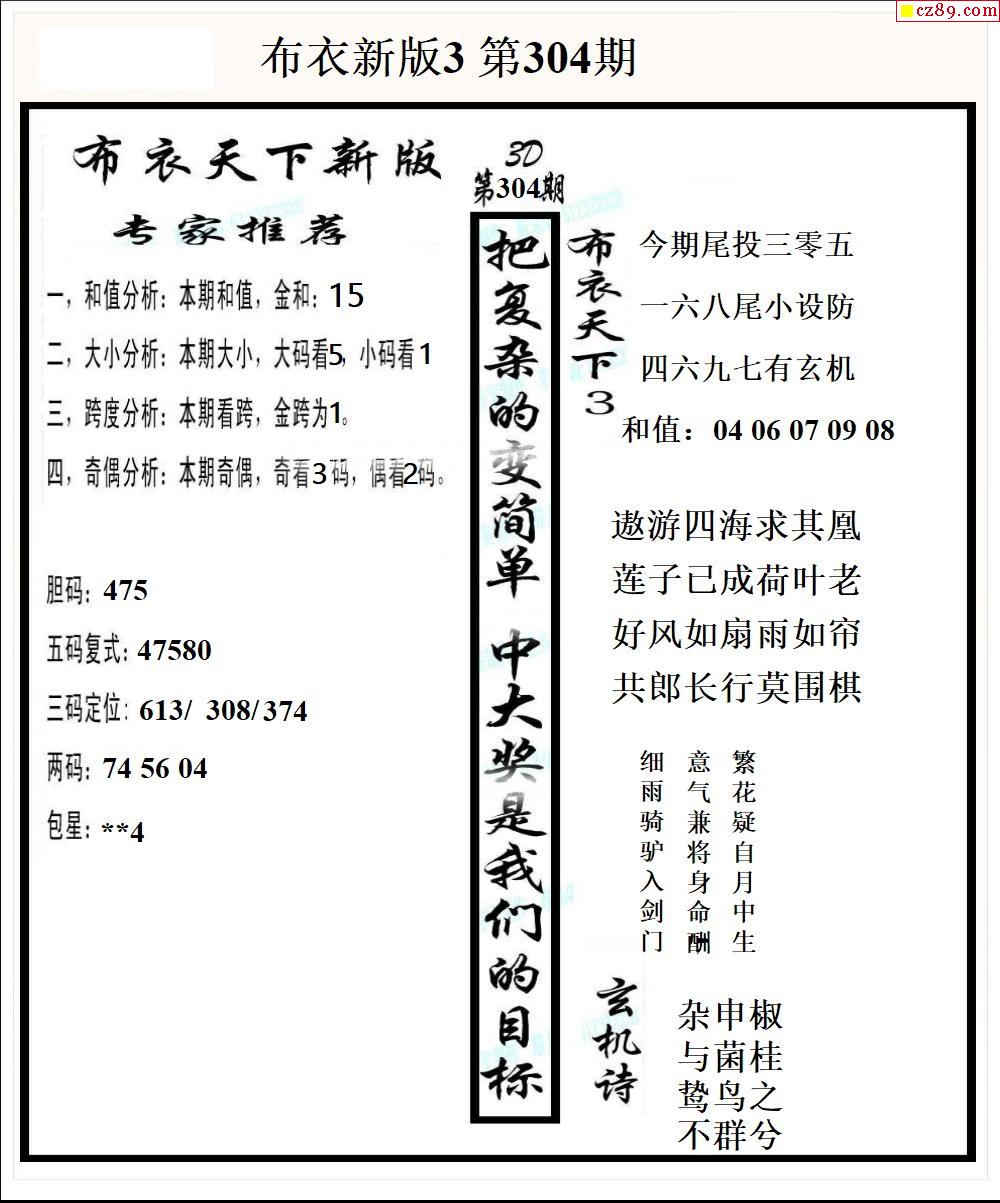 cz89.com
布衣新版3 第304期
布衣天下新版
专家推荐
一，和值分析：本期和值，金和：15
二，大小分析：本期大小，大码看5，小码看1
三，跨度分析：本期看跨，金跨为1。
四，奇偶分析：本期奇偶，奇看3码，偶看2码。
胆码：475
五码复式：47580
三码定位：613/ 308/374
两码：74 56 04
包星：**4
3D
第304期
把复杂的变简单 中大奖是我们的目标
布衣天下3
今期尾投三零五
一六八尾小设防
四六九七有玄机
和值：04 06 07 09 08
遨游四海求其凰
莲子已成荷叶老
好风如扇雨如帘
共郎长行莫围棋
繁花疑自月中生
意气兼将身命酬
细雨骑驴入剑门
玄机诗
杂申椒
与菌桂
鸷鸟之
不群兮